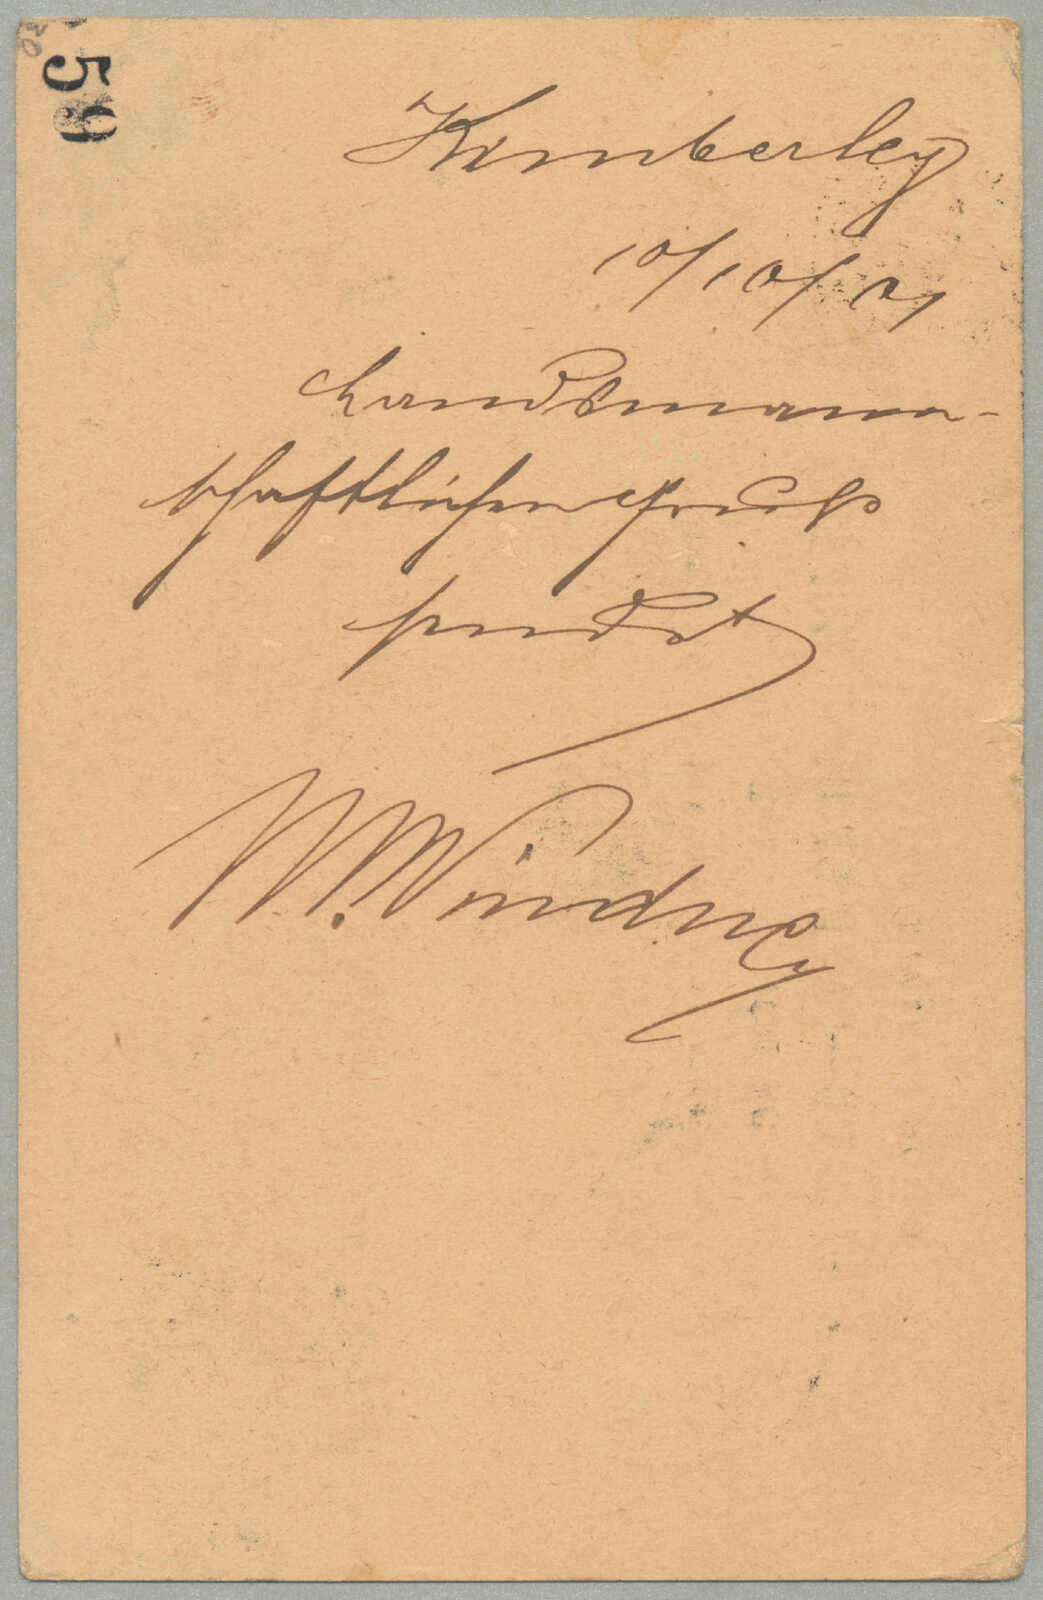 59
Kimberley
10/10/01
Landsmann-
schaftlichen Gruß
sendet